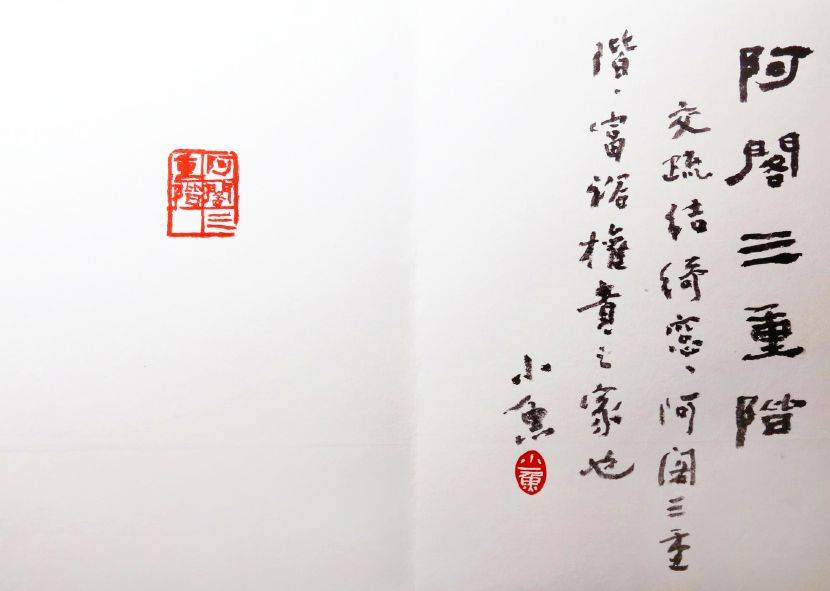 阿閣三重階
交疏結綺窓、阿閣三重
階、富裕權貴之家也
小魚
小魚
阿閣三
重階